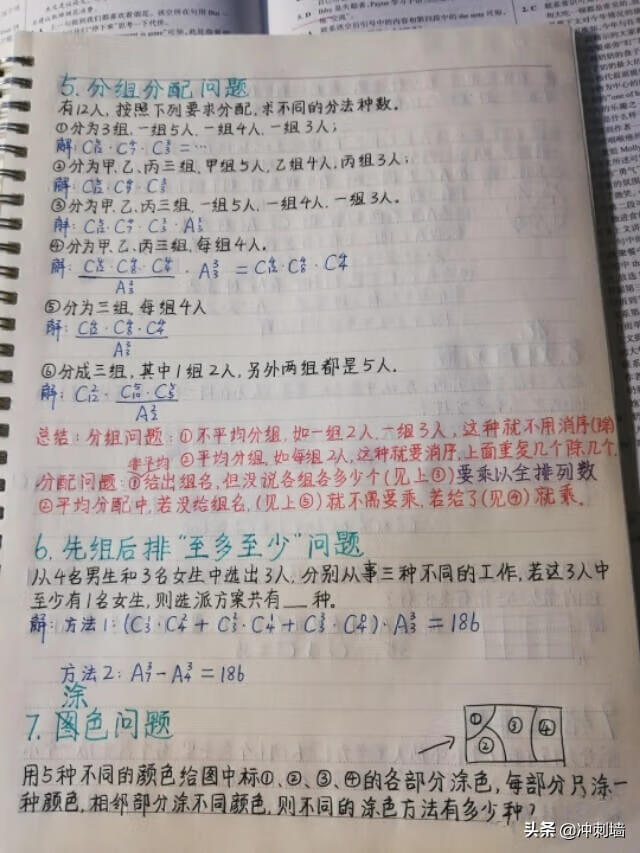 5. 分组分配问题
有12人,按照下列要求分配,求不同的分法种数。
①分为3组,一组5人,一组4人,一组3人;
解: C⁵₁₂·C⁴₇·C³₃=…
②分为甲、乙、丙三组,甲组5人,乙组4人,丙组3人;
解: C⁵₁₂·C⁴₇·C³₃
③分为甲、乙、丙三组,一组5人,一组4人,一组3人。
解: C⁵₁₂·C⁴₇·C³₃·A³₃
④分为甲、乙、丙三组,每组4人。
解: C⁴₁₂·C⁴₈·C⁴₄/A³₃ · A³₃ = C⁴₁₂·C⁴₈·C⁴₄
⑤分为三组,每组4人
解: C⁴₁₂·C⁴₈·C⁴₄/A³₃
⑥分成三组,其中1组2人,另外两组都是5人。
解: C²₁₂·C⁵₁₀·C⁵₅/A²₂
总结:分组问题:①不平均分组,如一组2人,一组3人,这种就不用消序(除)
非平均 ②平均分组,如每组2人,这种就要消序,上面重复几个除几个.
分配问题:①给出组名,但没说各组各多少个(见上③)要乘以全排列数
②平均分配中,若没给组名,(见上⑤)就不需要乘,若给了(见④)就乘。
6. 先组后排“至多至少”问题
1从4名男生和3名女生中选出3人,分别从事三种不同的工作,若这3人中
至少有1名女生,则选派方案共有___种。
解: 方法1: (C¹₃·C²₄+C²₃·C¹₄+C³₃·C⁰₄)·A³₃=186
方法2: A³₇-A³₄=186
涂
7. 图色问题
① ② ③ ④
用5种不同的颜色给图中标①、②、③、④的各部分涂色,每部分只涂一
种颜色,相邻部分涂不同颜色,则不同的涂色方法有多少种?
头条 @冲刺墙